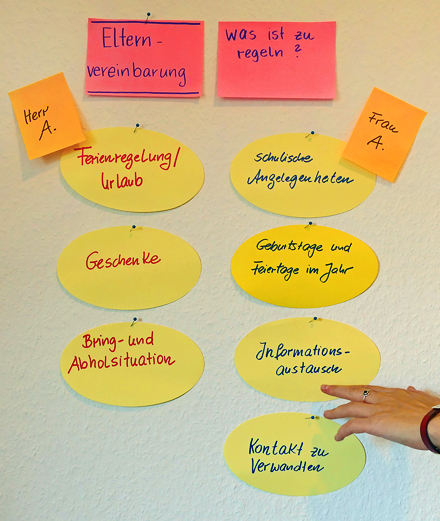 Eltern-
vereinbarung
Was ist zu
regeln?
Herr
A.
Frau
A.
Ferienregelung/
Urlaub
Geschenke
Bring- und
Abholsituation
schulische
Angelegenheten
Geburtstage und
Feiertage im Jahr
Informations-
austausch
Kontakt zu
Verwandten